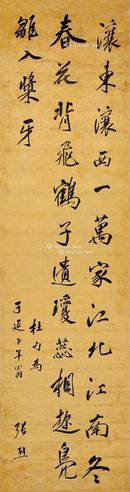 瀼東瀼西一萬家江北江南冬
春花背飛鶴子遺瓊蕊相趂鳧
雛入槳牙
杜句為
子延年翁
張烈